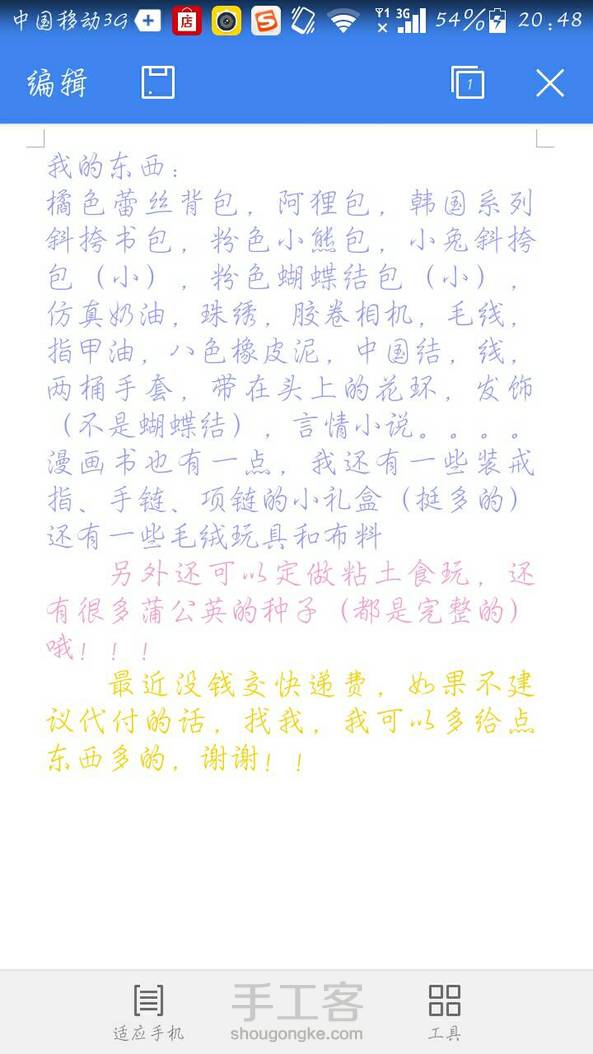 中国移动3G 店 Y1 3G 54% 20:48
编辑 1
我的东西：
橘色蕾丝背包，阿狸包，韩国系列
斜挎书包，粉色小熊包，小兔斜挎
包（小），粉色蝴蝶结包（小），
仿真奶油，珠绣，胶卷相机，毛线，
指甲油，八色橡皮泥，中国结，线，
两桶手套，带在头上的花环，发饰
（不是蝴蝶结），言情小说。。。。
漫画书也有一点，我还有一些装戒
指、手链、项链的小礼盒（挺多的）
还有一些毛绒玩具和布料
另外还可以定做粘土食玩，还
有很多蒲公英的种子（都是完整的）
哦！！！
最近没钱交快递费，如果不建
议代付的话，找我，我可以多给点
东西多的，谢谢！！
适应手机 手工客 工具
shougongke.com